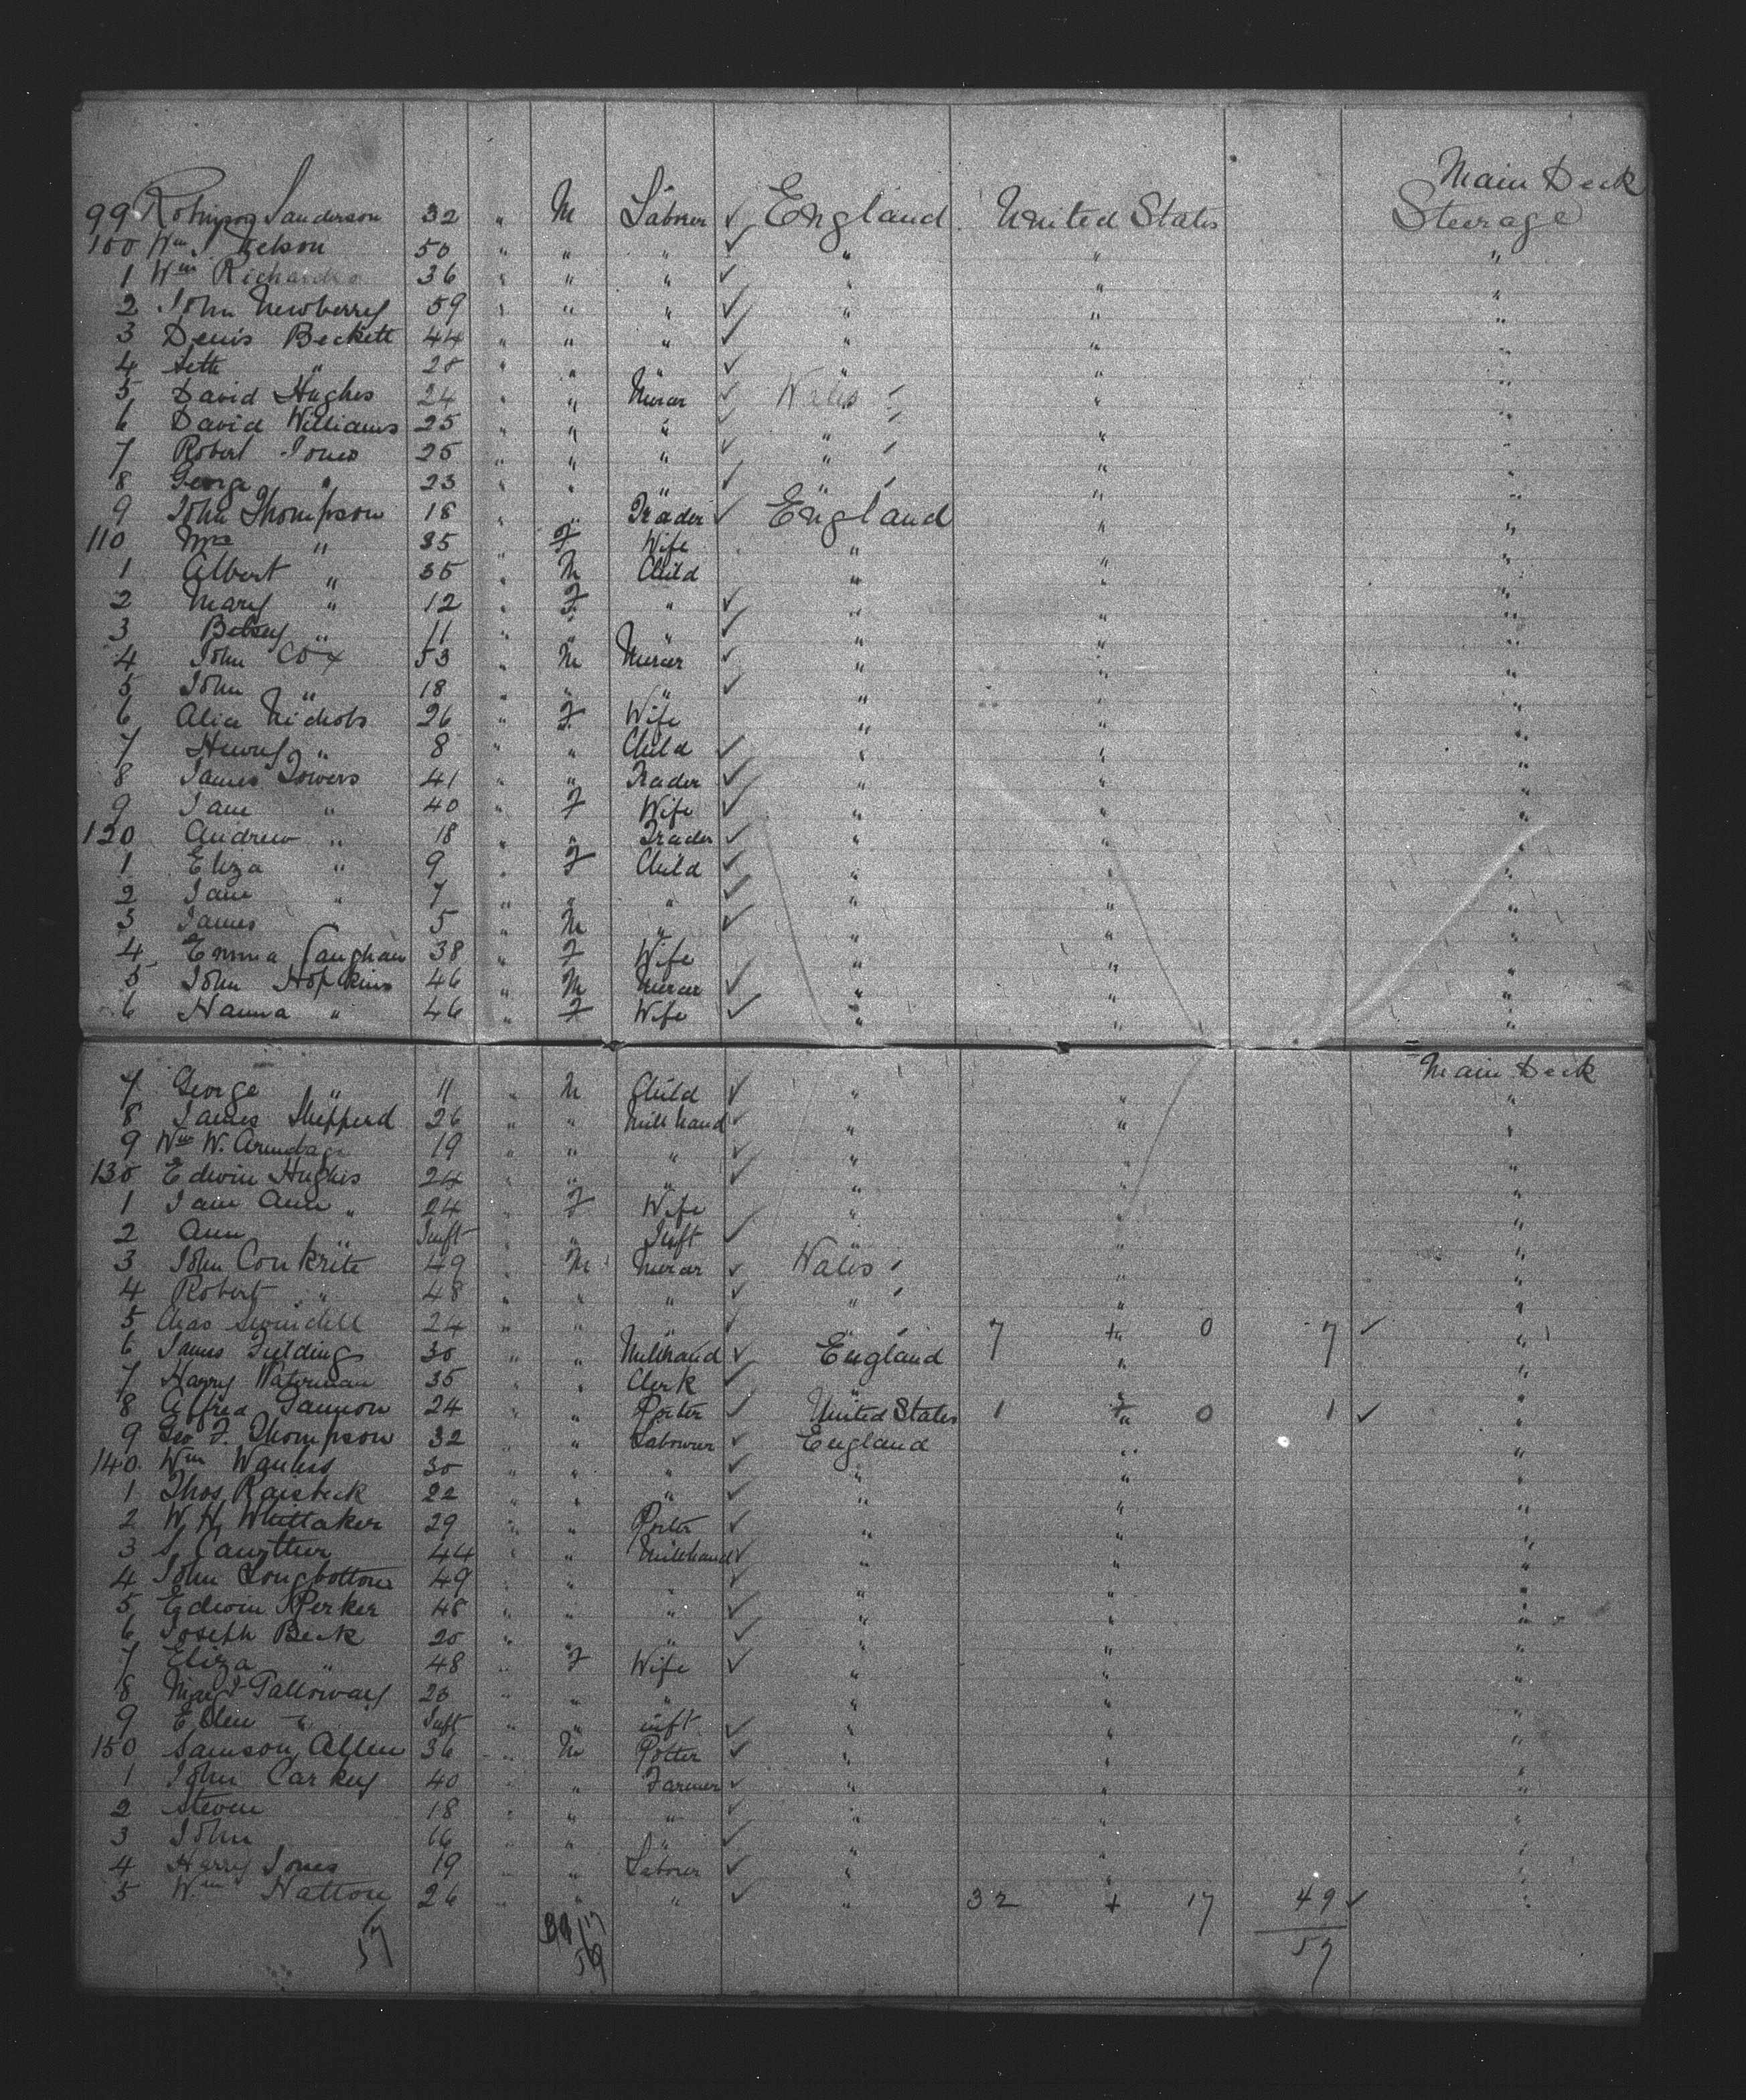 Main Deck
99 Robinson Sanderson 32 " M Laborer ✓ England United States Steerage
100 Wm Nelson 50 " " " ✓ " " "
1 Wm Richards 36 " " " ✓ " " "
2 John Newberry 59 " " " ✓ " " "
3 Denis Beckett 44 " " " ✓ " " "
4 Seth " 28 " " " ✓ " " "
5 David Hughes 24 " " Miner ✓ Wales " "
6 David Williams 25 " " " ✓ " " "
7 Robert Jones 25 " " " ✓ " " "
8 George " 23 " " " ✓ " " "
9 John Thompson 18 " " Trader ✓ England " "
110 Mrs " 35 " F Wife " " "
1 Albert " 35 " M Child " " "
2 Mary " 12 " F " ✓ " " "
3 Betsey " 11 " " " ✓ " " "
4 John Cox 53 " M Miner ✓ " " "
5 John " 18 " " " ✓ " " "
6 Alice Nichols 26 " F Wife " " "
7 Henry " 8 " " Child ✓ " " "
8 James Towers 41 " " Trader ✓ " " "
9 Jane " 40 " F Wife ✓ " " "
120 Andrew " 18 " " Trader ✓ " " "
1 Eliza " 9 " F Child ✓ " " "
2 Jane " 7 " " " ✓ " " "
3 James 5 " M " ✓ " " "
4 Emma Vaughan 38 " F Wife " " "
5 John Hopkins 46 " M Miner ✓ " " "
6 Hanna " 46 " F Wife ✓ " " "
Main Deck
7 George " 11 " M Child ✓ " " "
8 James Shepperd 26 " " Mill hand ✓ " " "
9 Wm W. 19 " " " ✓ " " "
130 Edwin Hughes 24 " " " ✓ " " "
1 Jane Ann " 24 " F Wife " " "
2 Ann " Inft " " Inft ✓ " " "
3 John Conkrite 49 " M Miner ✓ Wales " "
4 Robert " 48 " " " ✓ " " "
5 Chas Swindell 24 " " " ✓ " 7 + 0 7 ✓ "
6 James Fielding 30 " " Millhand ✓ England " "
7 Harry Waterman 35 " " Clerk ✓ " " "
8 Alfred Gannon 24 " " Porter ✓ United States 1 + 0 1 ✓ "
9 Geo F. Thompson 32 " " Labourer ✓ England " "
140 Wm 30 " " " ✓ " " "
1 Thos Raisbeck 22 " " " ✓ " " "
2 W. H. Whittaker 29 " " Porter ✓ " " "
3 S. 44 " " Millhand ✓ " " "
4 John Longbottom 49 " " " ✓ " " "
5 Edwin Perker 48 " " " ✓ " " "
6 Joseph Beck 20 " " " ✓ " " "
7 Eliza " 48 " F Wife ✓ " " "
8 Galloway 23 " " " " " "
9 Ellen " Inft " " inft ✓ " " "
150 Samson Allen 36 " M Potter ✓ " " "
1 John Carkey 40 " " Farmer ✓ " " "
2 Steven 18 " " " ✓ " " "
3 John 16 " " " ✓ " " "
4 Harry Jones 19 " " Laborer ✓ " " "
5 Wm Hatton 26 " " " ✓ " 32 + 17 49 ✓ "
57 57